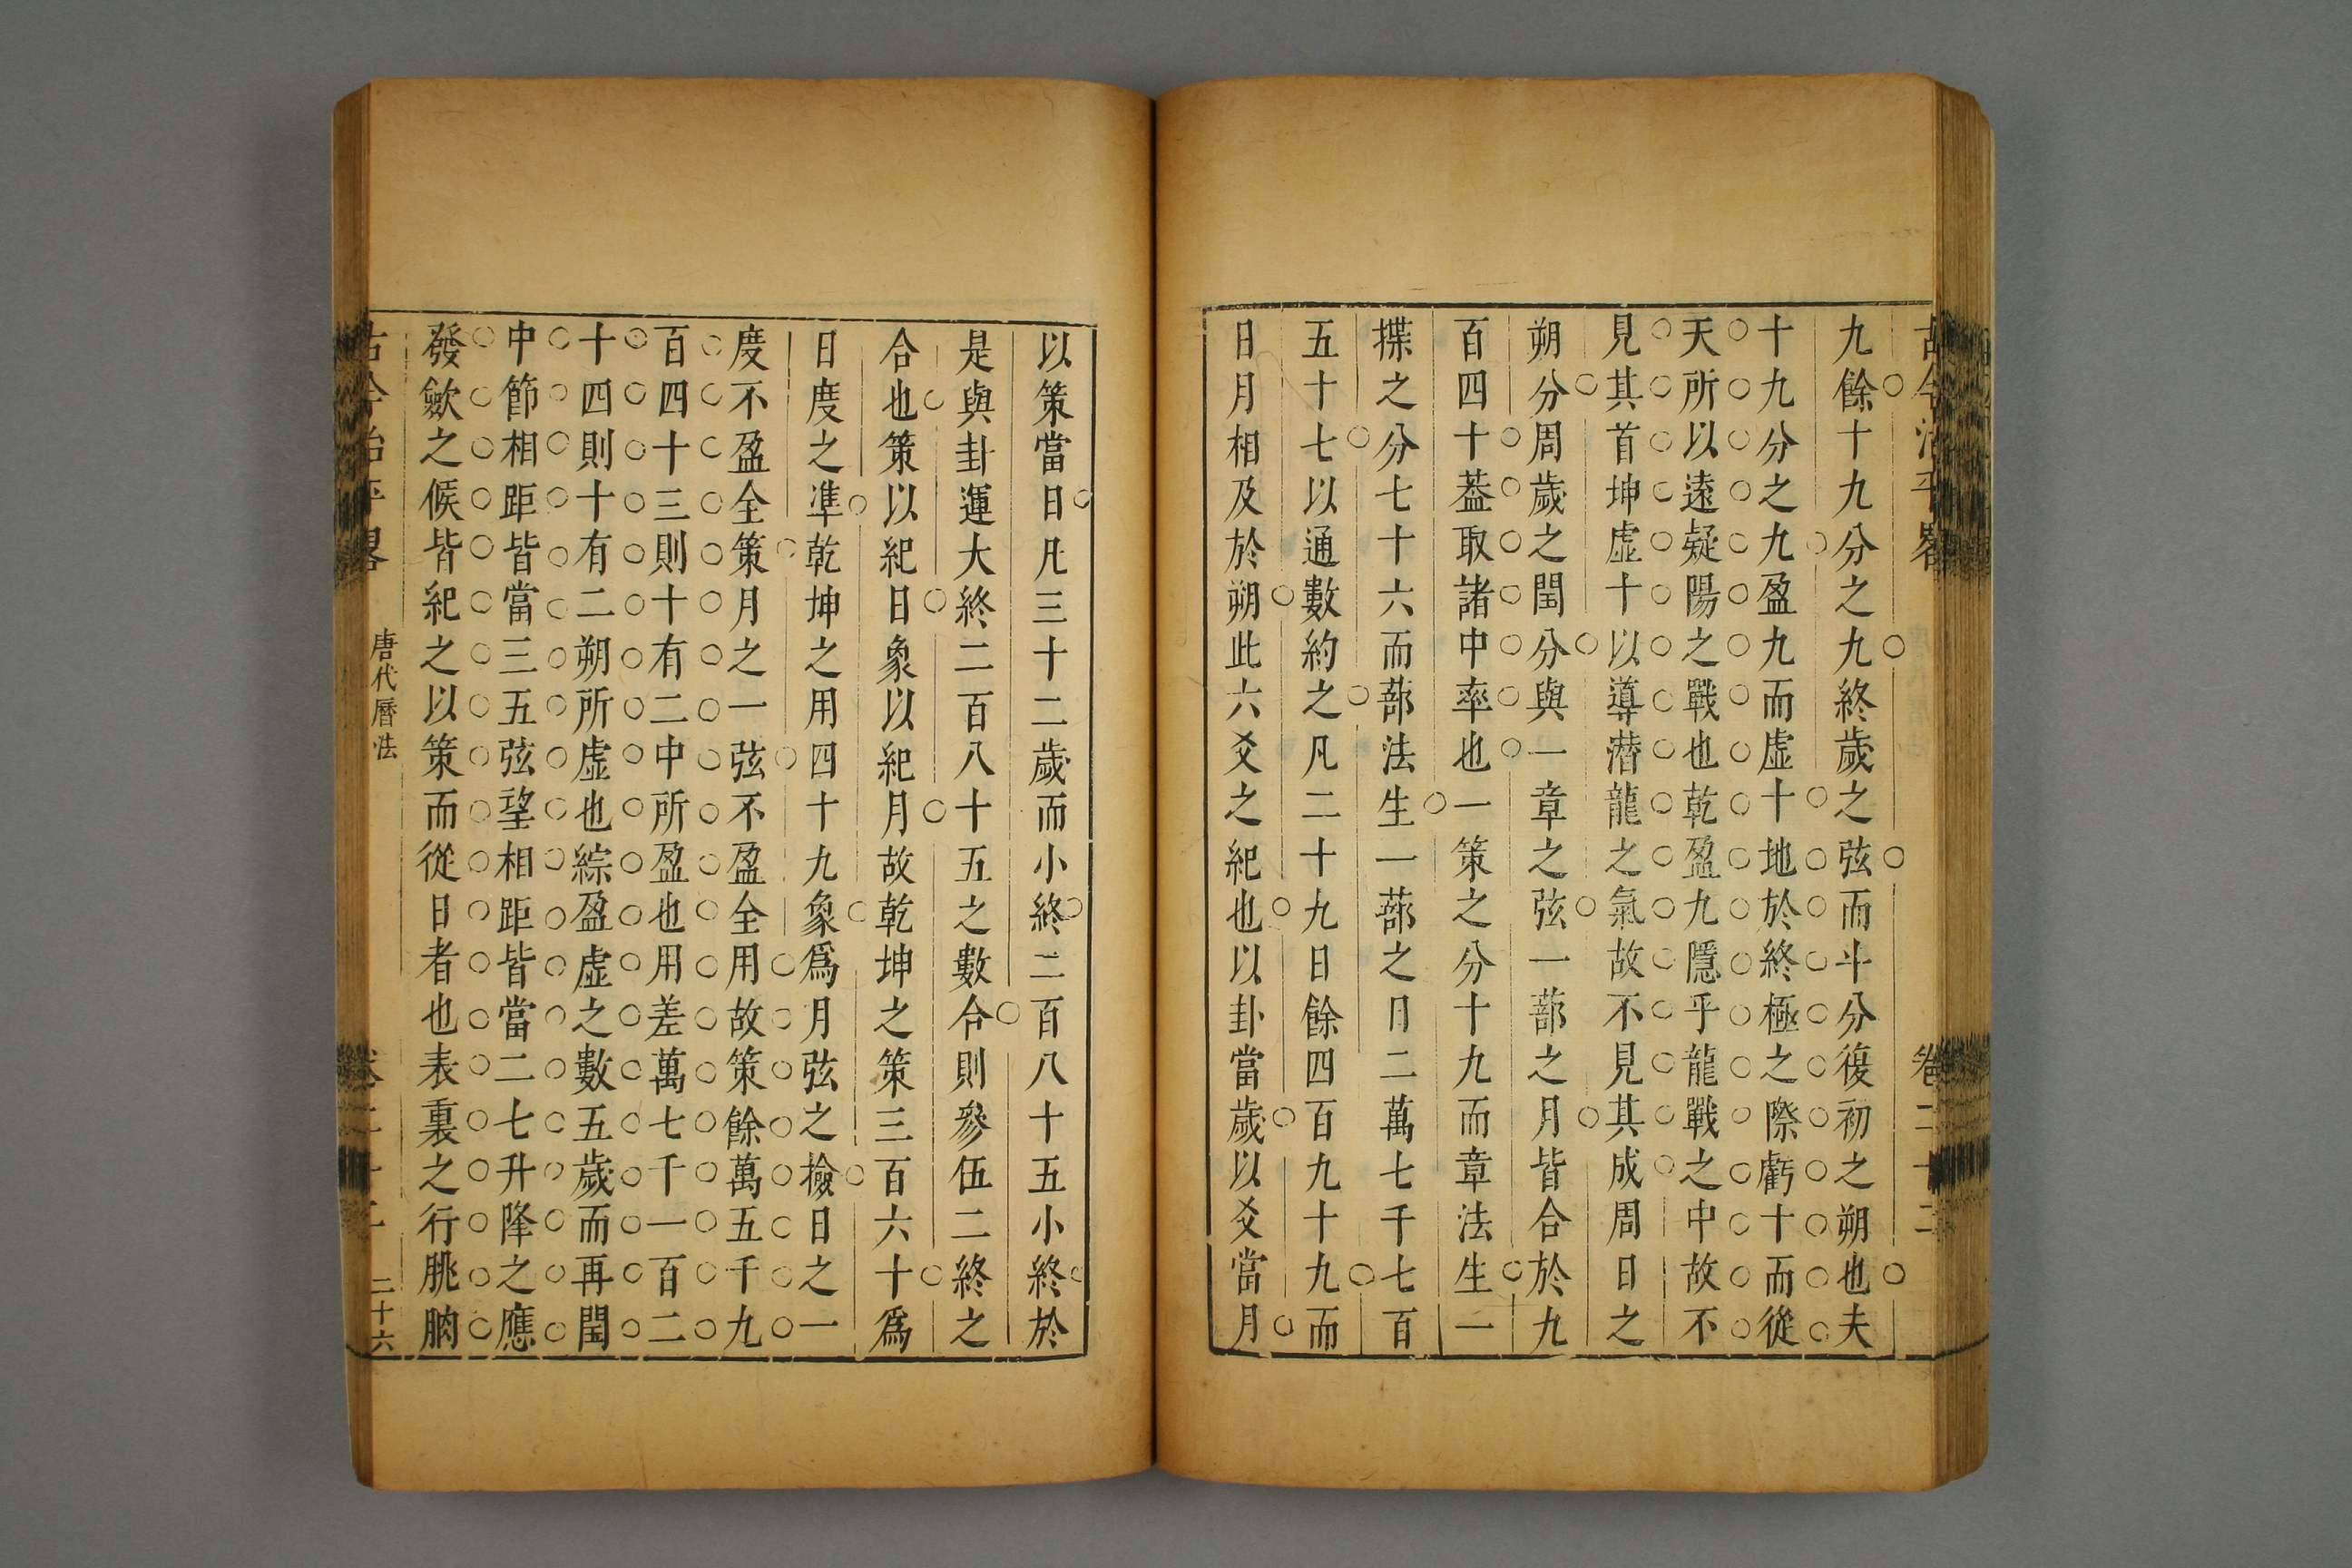 古今治平畧 卷二十二
九餘十九分之九終歲之弦而斗分復初之朔也夫
十九分之九盈九而虛十地於終極之際虧十而從
天所以遠疑陽之戰也乾盈九隱乎龍戰之中故不
見其首坤虛十以導潛龍之氣故不見其成周日之
朔分周歲之閏分與一章之弦一蔀之月皆合於九
百四十葢取諸中率也一策之分十九而章法生一
揲之分七十六而蔀法生一蔀之日二萬七千七百
五十七以通數約之凡二十九日餘四百九十九而
日月相及於朔此六爻之紀也以卦當歲以爻當月
以策當日凡三十二歲而小終二百八十五小終於
是與卦運大終二百八十五之數合則參伍二終之
合也策以紀日象以紀月故乾坤之策三百六十爲
日度之準乾坤之用四十九象爲月弦之撿日之一
度不盈全策月之一弦不盈全用故策餘萬五千九
百四十三則十有二中所盈也用差萬七千一百二
十四則十有二朔所虛也綜盈虛之數五歲而再閏
中節相距皆當三五弦望相距皆當二七升降之應
發斂之候皆紀之以策而從日者也表裏之行朓朒
古今治平畧 唐代曆法 二十六